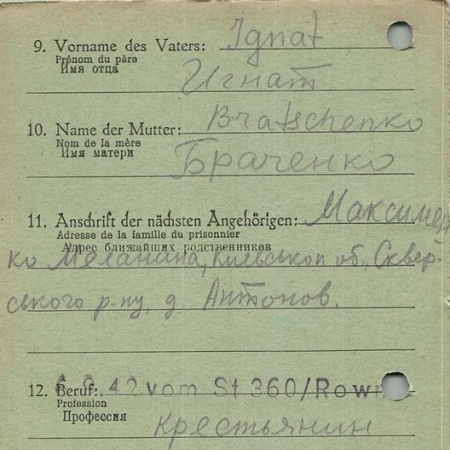 9. Vorname des Vaters: Ignat
Prénom du père
Имя отца
Игнат
10. Name der Mutter: Bratschenko
Nom de la mère
Имя матери
Браченко
11. Anschrift der nächsten Angehörigen: Максимен
Adresse de la famille du prisonnier
Адрес ближайших родственников
ко Меланина, Киевськоп об, Сквер-
ського р-ну, д. Антонов.
12. Beruf: 42 vom St 360/Rown
Profession
Профессия
крестьянин